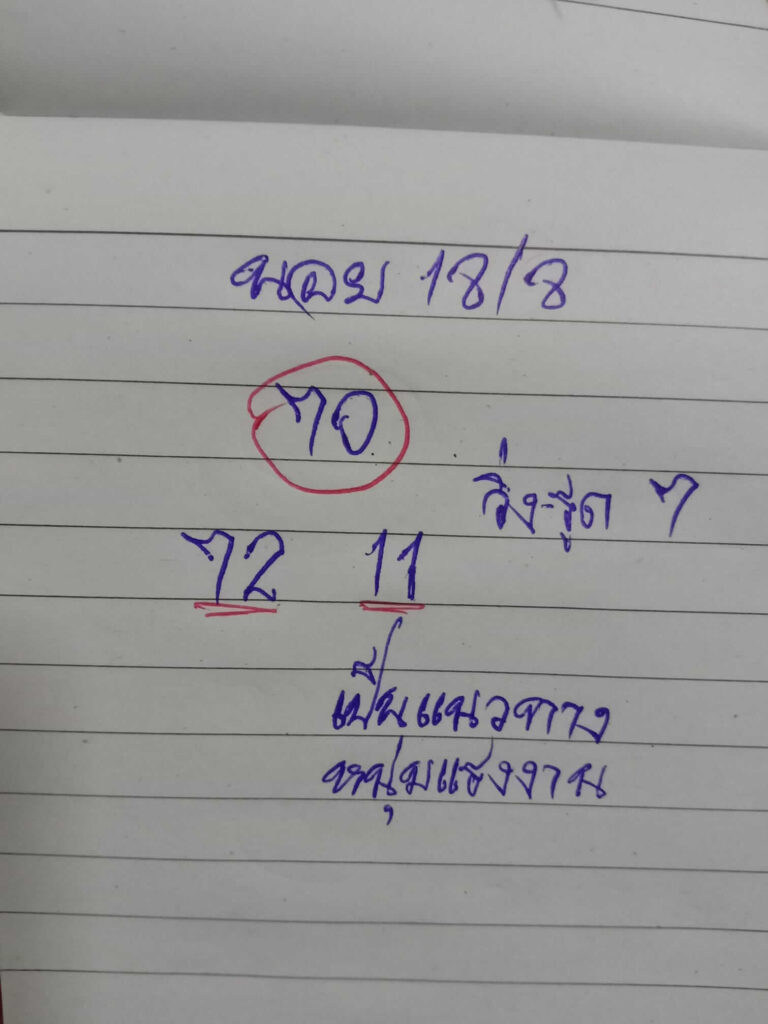 นอย 18/8
70
วิ่ง-รูด 7
72 11
เป็นแนวทาง
หนุ่มแรงงาน